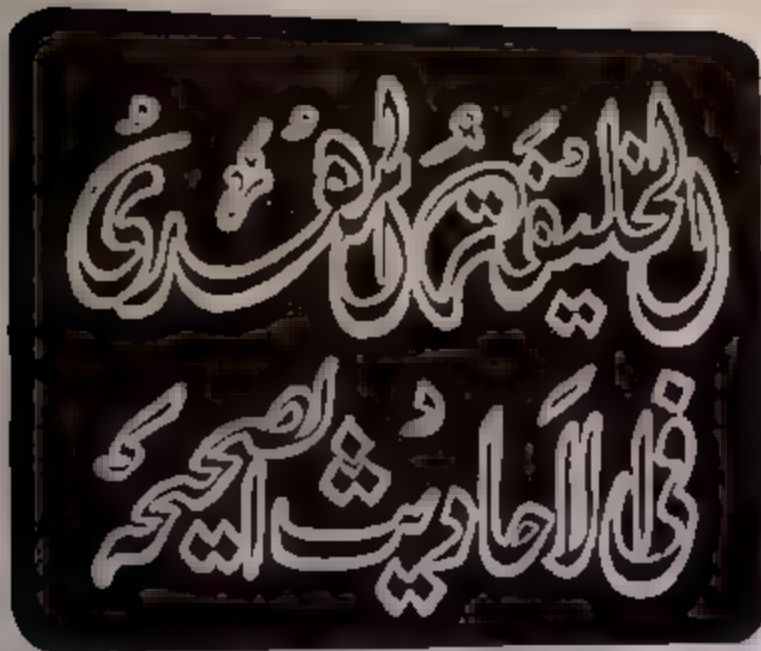 الخليفة المهدي
في الأحاديث الصحيحة